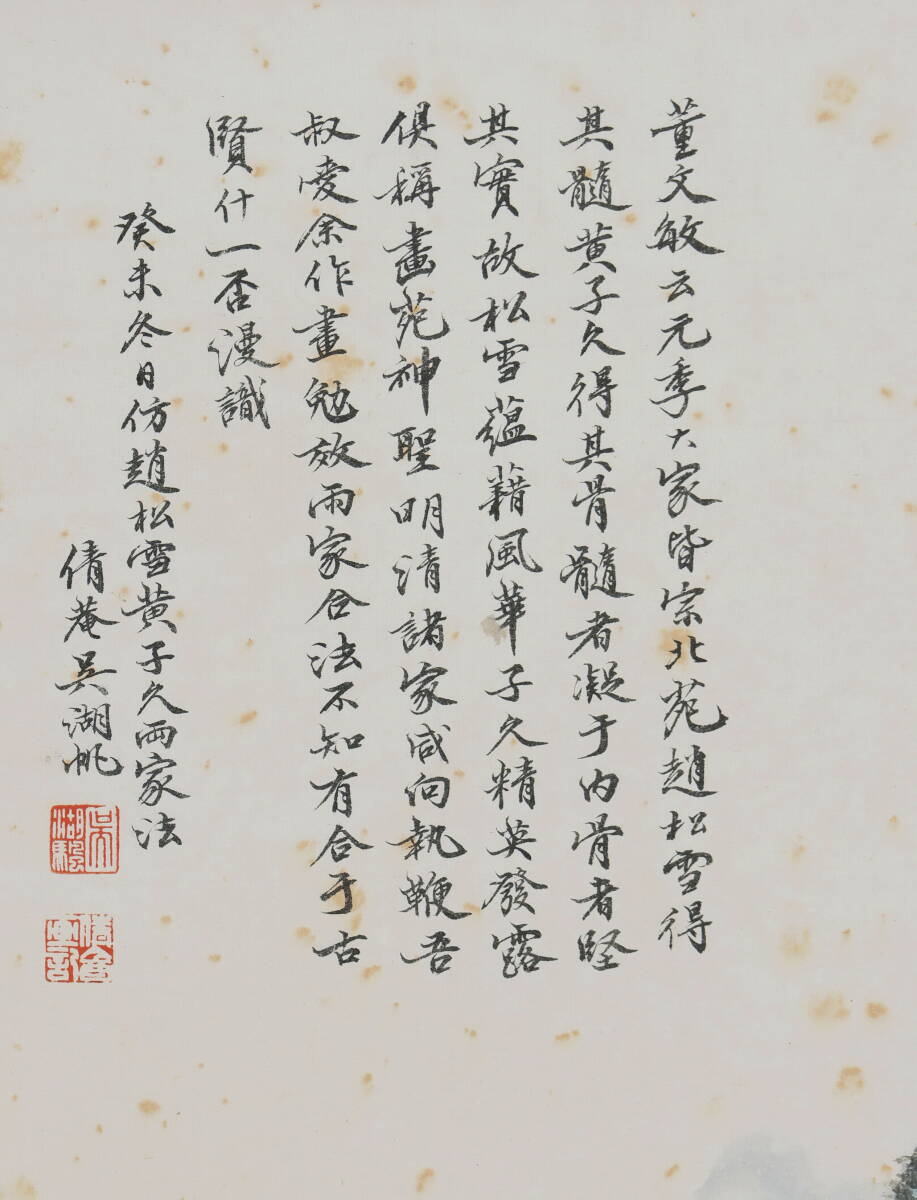 董文敏云元季大家皆宗北苑趙松雪得
其髓黄子久得其骨髓者凝于内骨者堅
其實故松雪蕴藉風華子久精英發露
俱稱畫苑神聖明清諸家咸向執鞭吾
叔愛余作畫勉效兩家合法不知有合于古
賢什一否漫識
癸未冬日仿趙松雪黄子久兩家法
倩菴吴湖帆